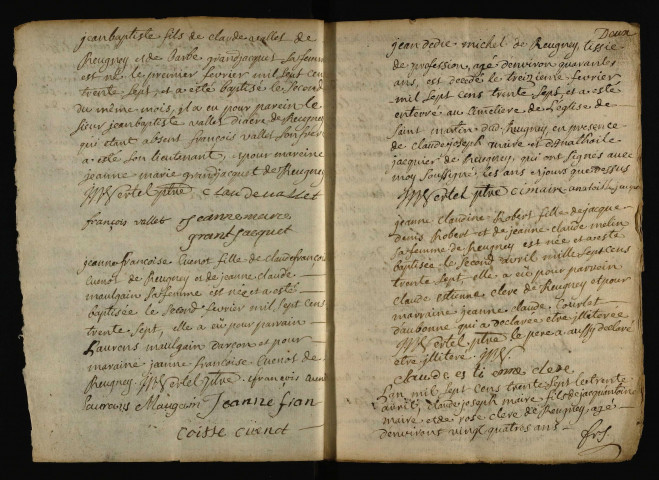 jean baptiste fils de claude vallet de
Reugney et de barbe grandjacquet sa femme
est né le premier fevrier mil sept cens
trente sept et a esté baptisé le second
du même mois, il a eu pour parein le
sieur jean baptiste vallet diacre de Reugney
qui etant absent françois vallet son frere
a esté son lieutenant, et pour mareine
jeanne marie grandjacquet de Reugney
Wertel ptre claude vallet
françois vallet jeanne marie
grant jacquet
jeanne françoise Cuenot fille de claude françois
Cuenot de Reugney et de jeanne claude
maulgain sa femme est née et a esté
baptisée le second fevrier mil sept cens
trente sept, elle a eu pour parrain
Laurens maulgain darçon et pour
maraine jeanne françoise Cuenot de
Reugney. Wertel ptre. françois
Laurans Maugain Jeanne fran
coisse cuenot
Deux
jean dedie michel de Reugney, tissie
de profession, age denviron quarantes
ans, est decedé le treizieme fevrier
mil sept cens trente sept, et a esté
enterré au cimetiere de l'église de
saint martin dud. Reugney, en presence
de claude joseph maire et danathoile
jacquier de Reugney, qui ont signés avec
moy soussigné les ans et jour que dessus
Wertel ptre
jeanne claudine Robert fille de jacque
denis Robert et de jeanne claude melin
sa femme de Reugney est née et a esté
baptisée le second avril mille sept cens
trente sept, elle a eu pour parrain
claude estienne clerc de Reugney et pour
marraine jeanne claude Courlet
daubonne qui a declarée etre illiterée
Wertel ptre le pere a aussy declaré
etre illiteré. W
claude etienne clerc
L'an mil sept cens trente sept le trente
avril, claude joseph maire, fils de jacque antoine
maire et de rose clerc de Reugney, age
denvirons vingt quatres ans